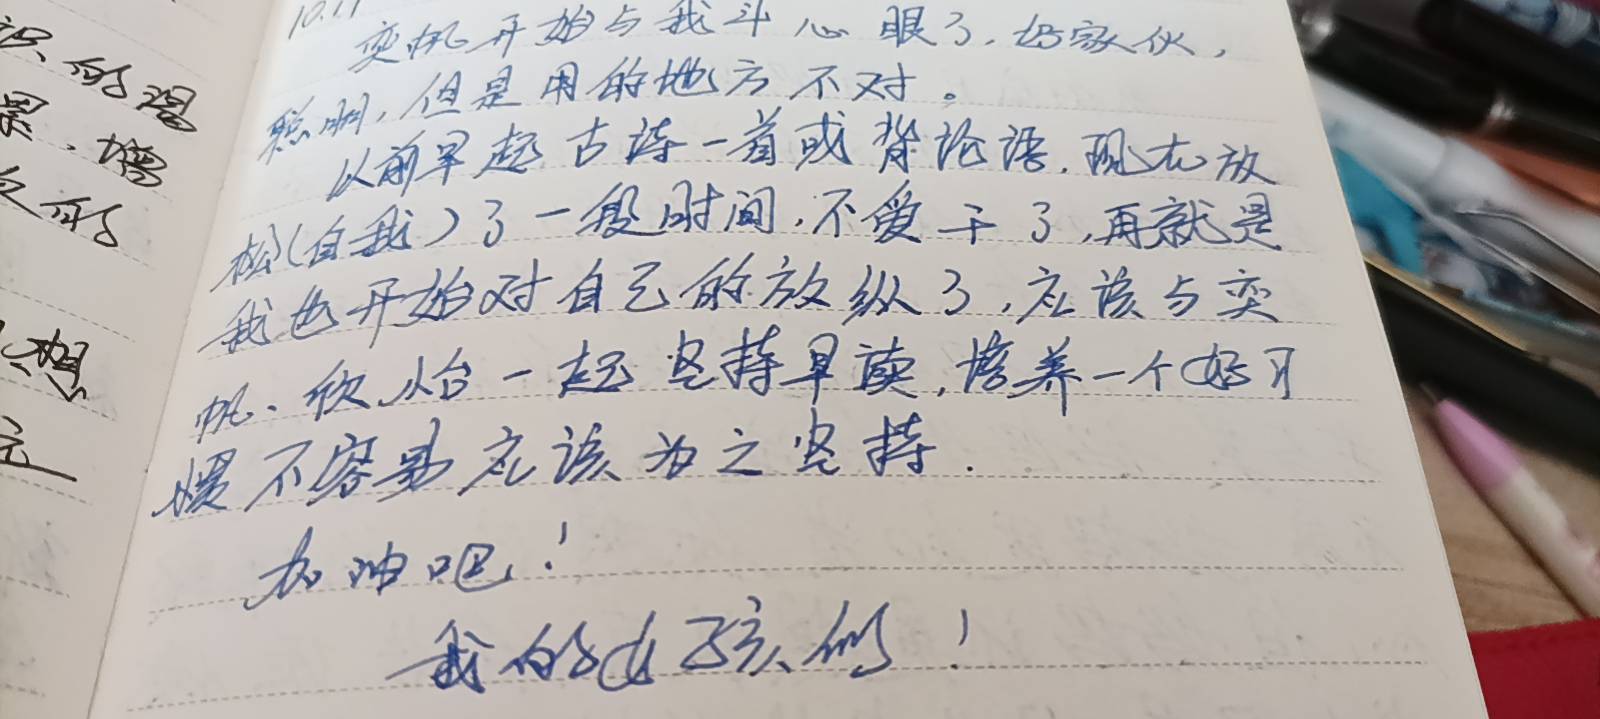 10.11
奕帆开始与我斗心眼了，好家伙，
聪明，但是用的地方不对。
以前早起古诗一首或背论语，现在放
松(自我)了一段时间，不爱干了，再就是
我也开始对自己的放纵了，应该与奕
帆、欣怡一起坚持早读，培养一个好习
惯不容易应该为之坚持.
加油吧！
我的女孩们！
识的
增
想